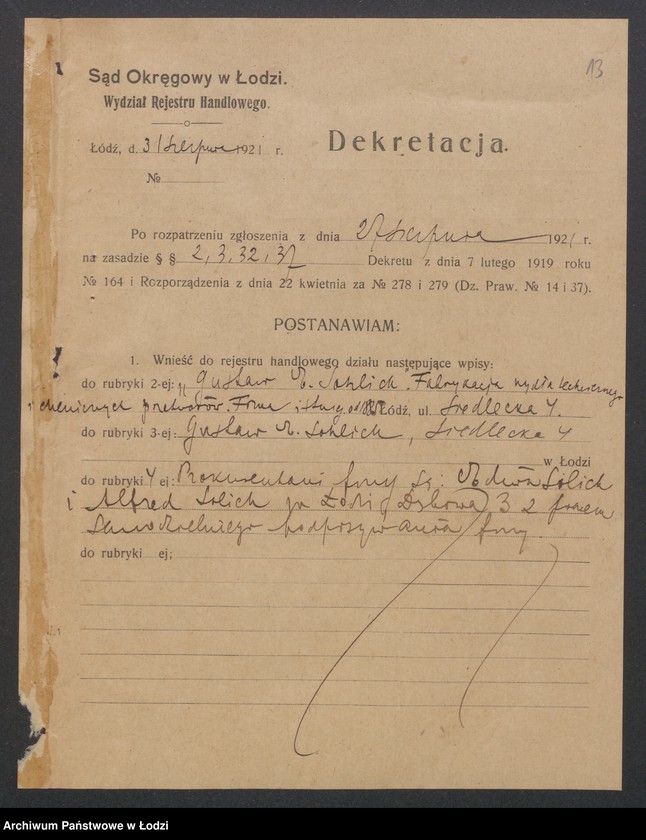 13
Sąd Okręgowy w Łodzi.
Wydział Rejestru Handlowego.
Łódź, d. 31 Sierpnia 1921 r.
Dekretacja.
№
Po rozpatrzeniu zgłoszenia z dnia 27 Sierpnia 1921 r.
na zasadzie § § 2, 3, 32, 37 Dekretu z dnia 7 lutego 1919 roku
№ 164 i Rozporządzenia z dnia 22 kwietnia za № 278 i 279 (Dz. Praw. № 14 i 37).
POSTANAWIAM:
1. Wnieść do rejestru handlowego działu następujące wpisy:
do rubryki 2-ej: „Gustaw Sohlich. Fabrykacja mydła technicznego
i chemicznych przetworów. Firma Łódź, ul. Siedlecka 4.
do rubryki 3-ej: Gustaw Sohlich, Siedlecka 4
w Łodzi
do rubryki 4 ej: Prokurentami firmy są: Solich
i Alfred Solich Dąbrowa 32 prawem
samodzielnego podpisywania firmy.
do rubryki ej:
Archiwum Państwowe w Łodzi